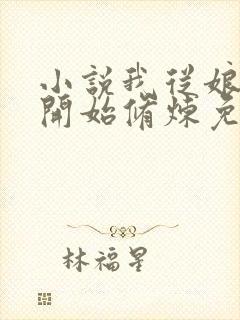 小說我從娘
開始脩煉免
林福星